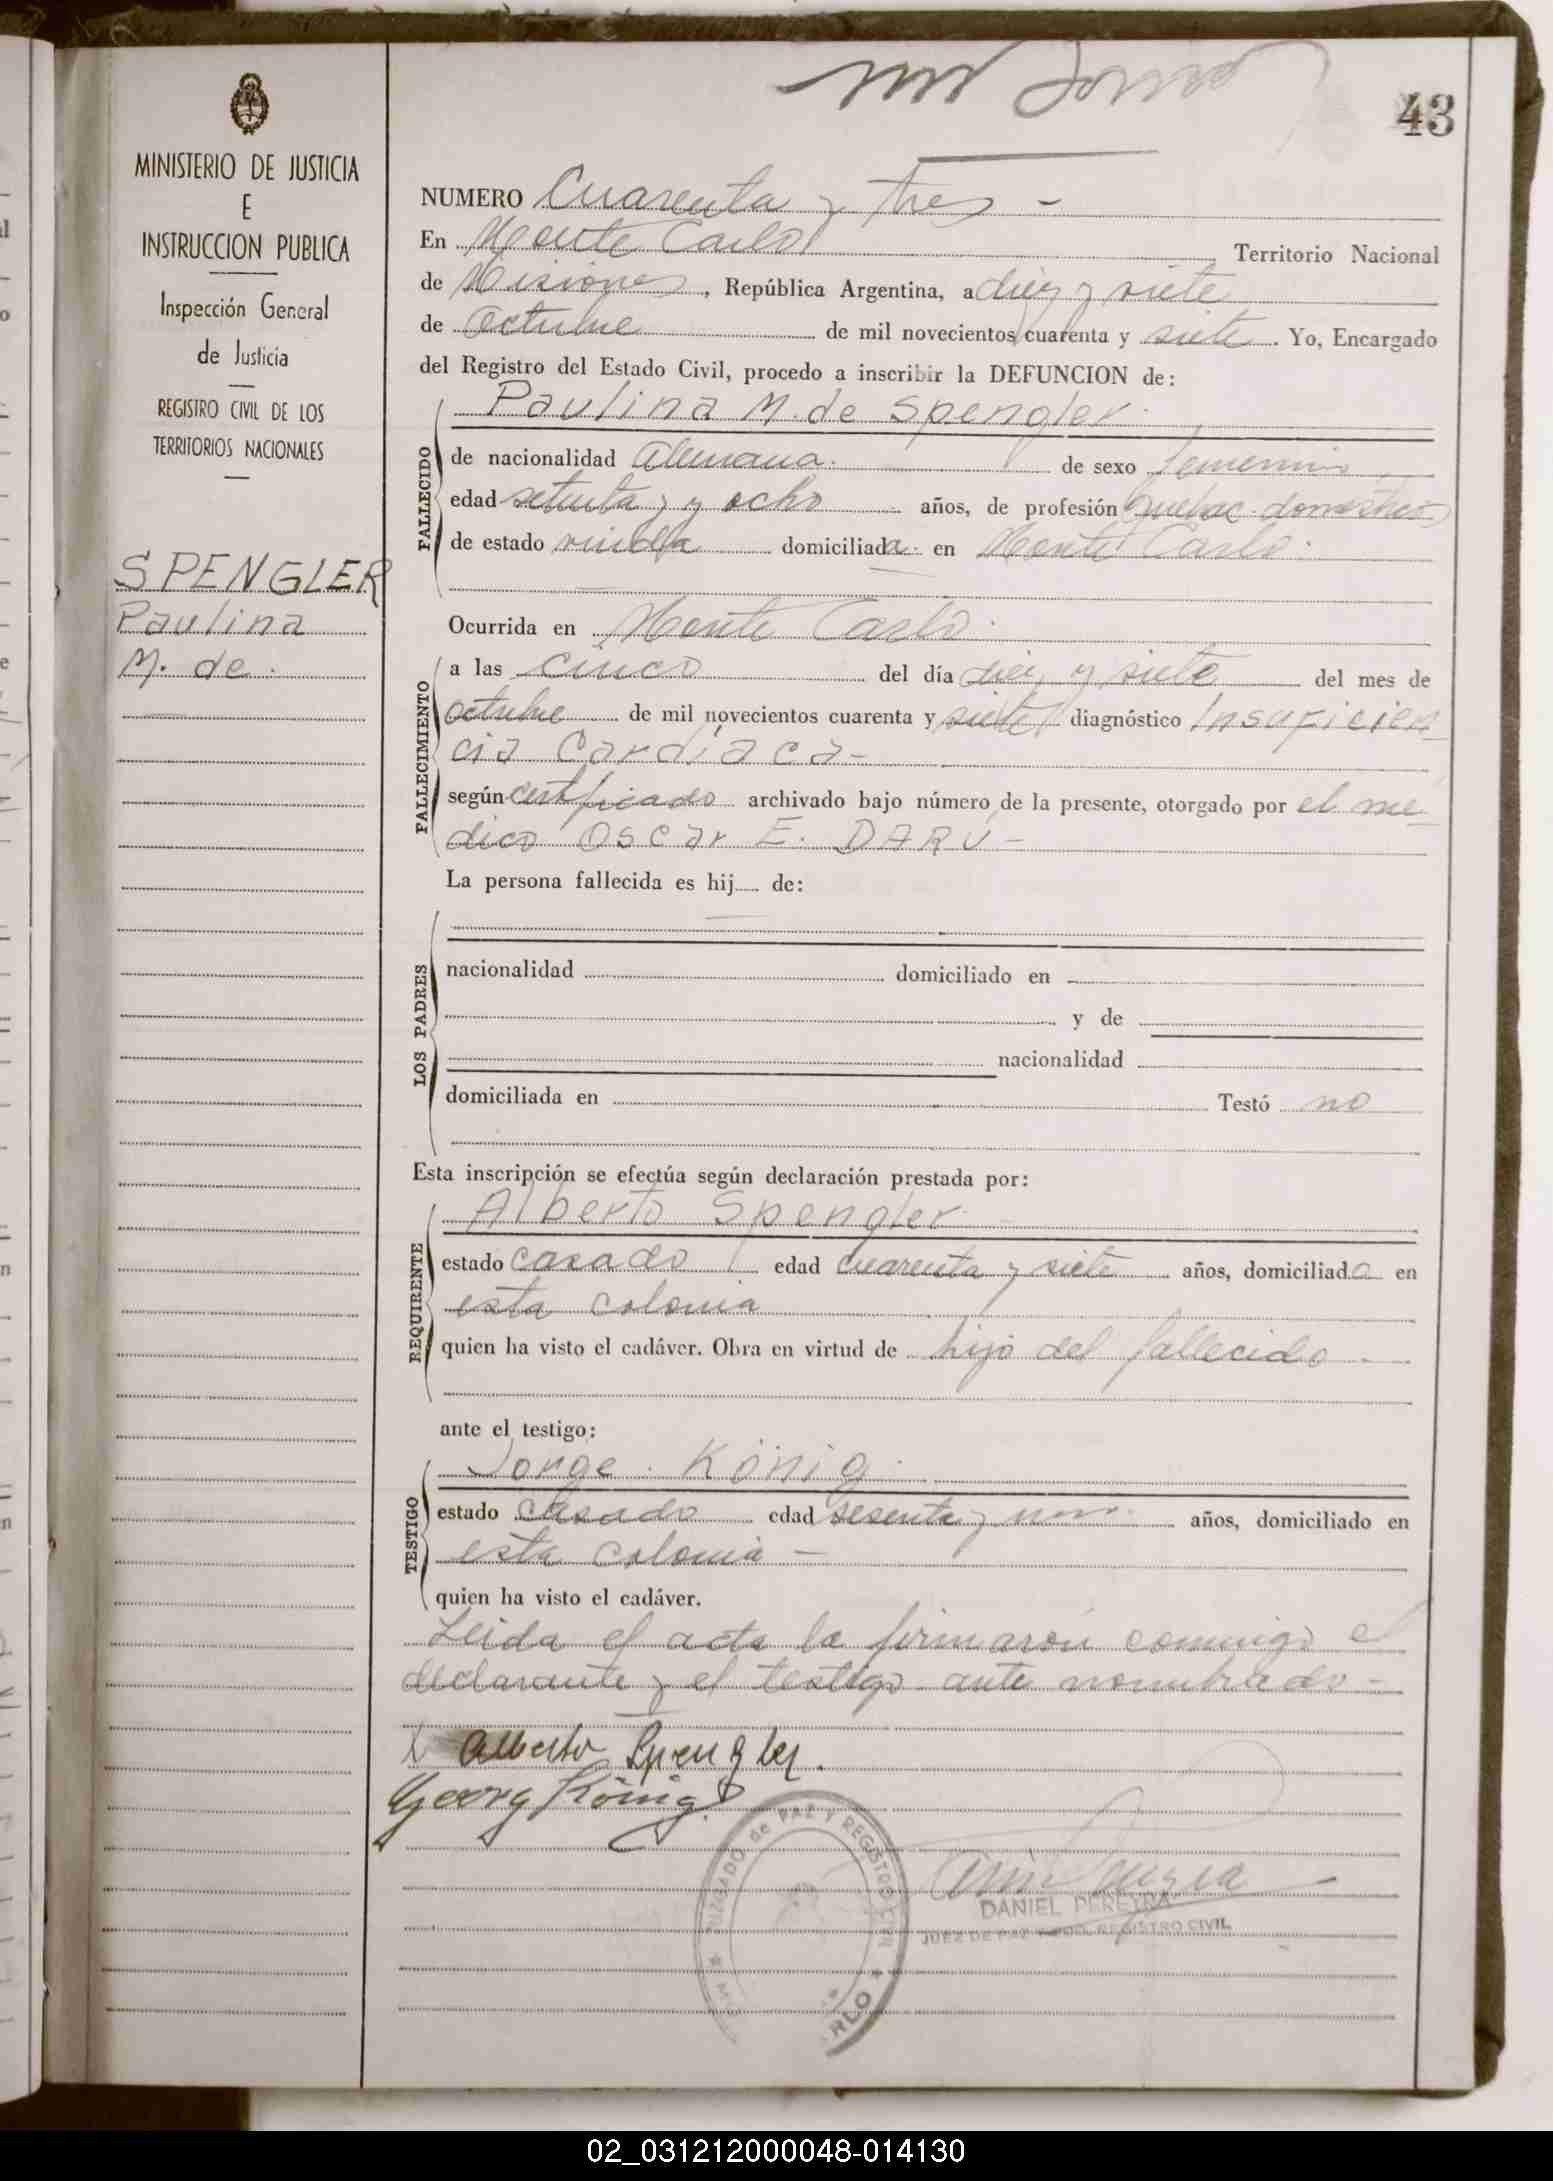 43
MINISTERIO DE JUSTICIA
E
INSTRUCCION PUBLICA
Inspección General
de Justicia
REGISTRO CIVIL DE LOS
TERRITORIOS NACIONALES
SPENGLER
Paulina
M. de.
NUMERO Cuarenta y tres -
En Monte Carlo Territorio Nacional
de Misiones, República Argentina, a diez y siete
de octubre de mil novecientos cuarenta y siete. Yo, Encargado
del Registro del Estado Civil, procedo a inscribir la DEFUNCION de:
Paulina M. de Spengler.
FALLECIDO
de nacionalidad alemana. de sexo femenino
edad setenta y y ocho años, de profesión quehac. domesticos
de estado viuda domiciliada en Monte Carlo.
Ocurrida en Monte Carlo.
FALLECIMIENTO
a las cinco del día diez y siete del mes de
octubre de mil novecientos cuarenta y siete diagnóstico Insuficien
cia Cardíaca-
según certificado archivado bajo número de la presente, otorgado por el me-
dico Oscar E. DARÚ-
La persona fallecida es hij de:
LOS PADRES
nacionalidad domiciliado en
y de
nacionalidad
domiciliada en Testó no
Esta inscripción se efectúa según declaración prestada por:
Alberto Spengler
REQUIRENTE
estado casado edad cuarenta y siete años, domiciliado en
esta colonia
quien ha visto el cadáver. Obra en virtud de hijo del fallecido -
ante el testigo:
Jorge König.
TESTIGO
estado casado edad sesenta y años, domiciliado en
esta colonia -
quien ha visto el cadáver.
Leida el acta la firmaron conmigo el
declarante y el testigo ante nombrado -
Alberto Spengler.
Georg König
JUZGADO de PAZ Y REGISTRO
DANIEL PEREYRA
JUEZ DE PAZ Y DEL REGISTRO CIVIL
02_031212000048-014130